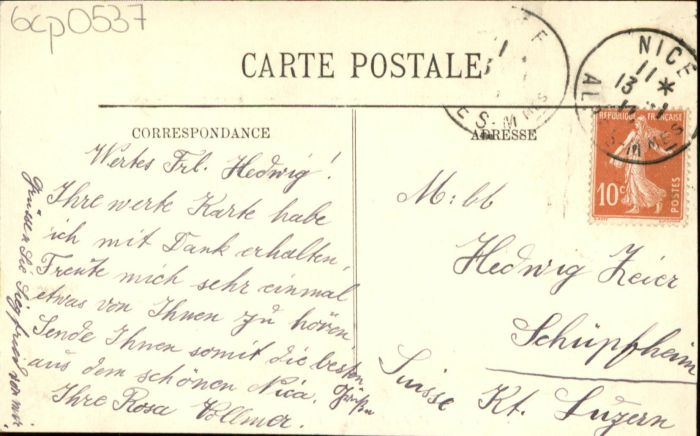 6cp0537
CARTE POSTALE
CORRESPONDANCE
ADRESSE
NICE
11 *
13 -1
ALPES-MMES
REPUBLIQUE FRANÇAISE
10c
POSTES
Wertes Frl. Hedwig!
Ihre werte Karte habe
ich mit Dank erhalten,
Freute mich sehr einmal
etwas von Ihnen zu hören
Sende Ihnen somit die besten
Grüße
aus dem schönen Nica.
Ihre Rosa Vollmer.
Grüssen Sie Siegfried von mir.
M:lle
Hedwig Zeier
Schüpfheim
Kt. Luzern
Suisse